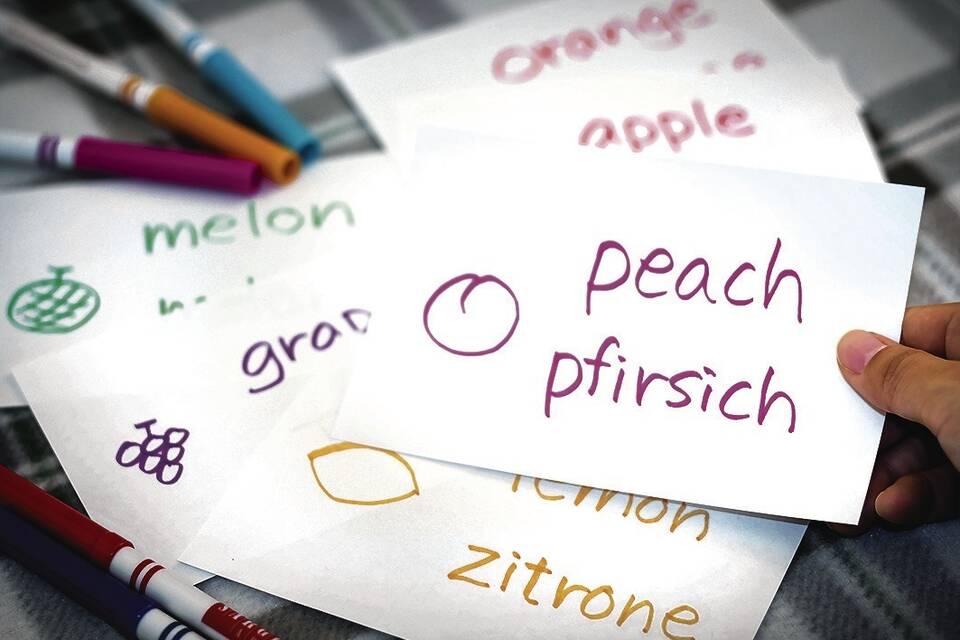 orange
apple
melon
peach
pfirsich
lemon
zitrone